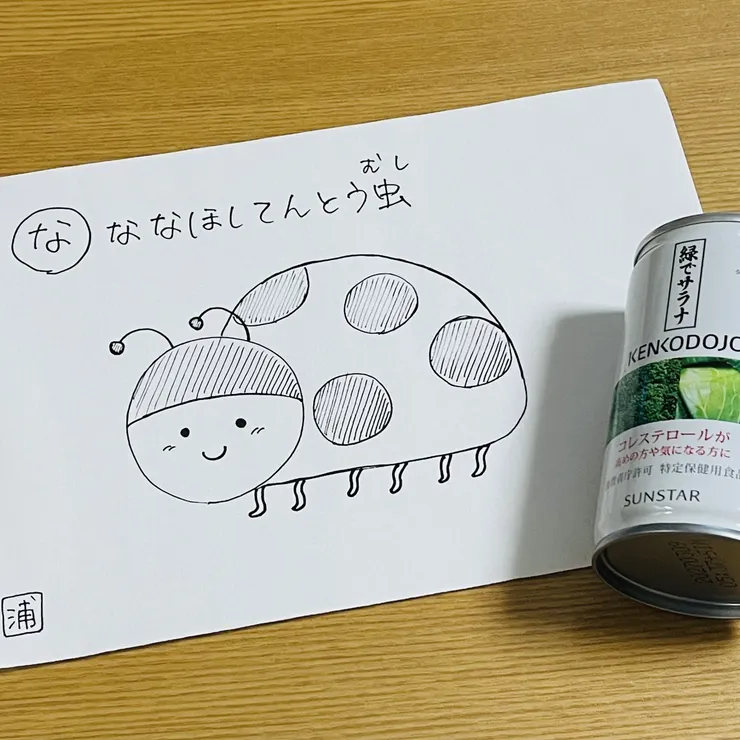 むし
な ななほしてんとう虫
浦
緑でサラナ
KENKODOJO
コレステロールが
高めの方や気になる方に
消費者庁許可 特定保健用食品
SUNSTAR